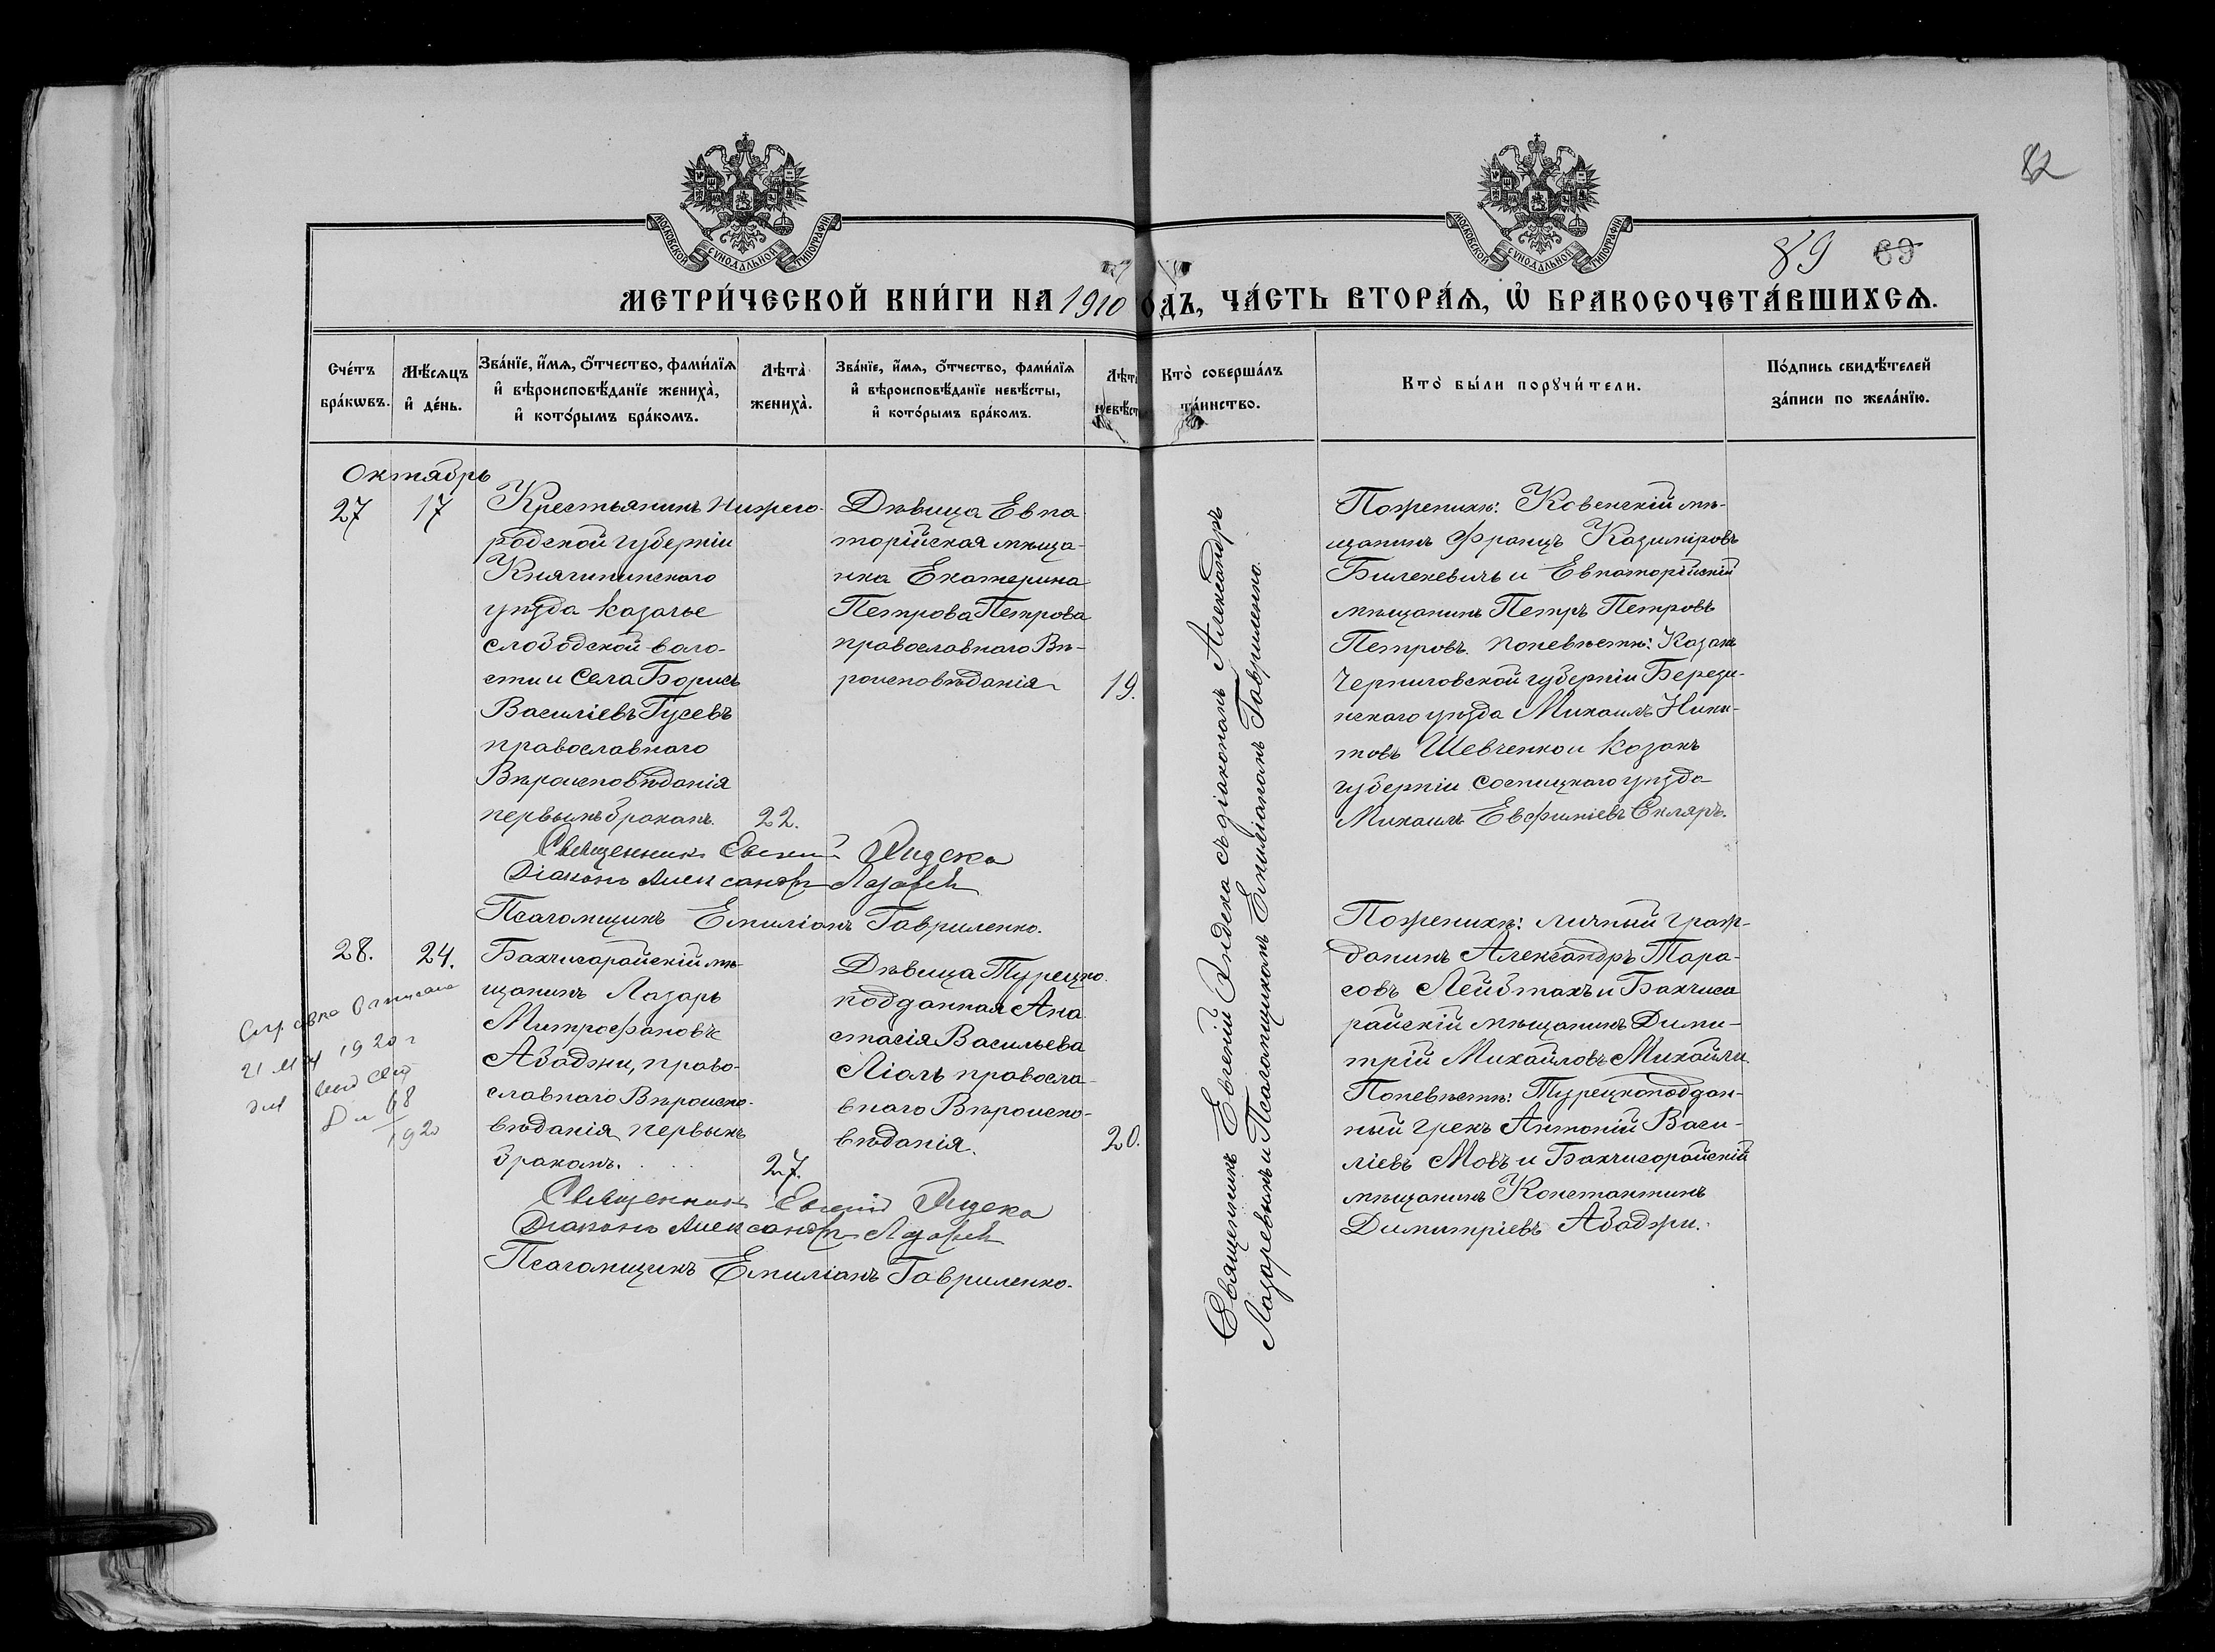 82
МОСКОВСКОЙ СУНОДАЛЬНОЙ ТИПОГРАФІИ
МОСКОВСКОЙ СУНОДАЛЬНОЙ ТИПОГРАФІИ
89 69
МЕТРИ́ЧЕСКОЙ КНИ́ГИ НА 1910 ГОДЪ, ЧА́СТЬ ВТОРА́Ѧ, Ѽ БРАКОСОЧЕТА́ВШИХСѦ.
Сче́тъ бра́кѡвъ.
Мѣ́сѧцъ и҆ де́нь.
Зва́нїе, и҆́мѧ, ѻ҆́тчество, фами́лїѧ
и҆ вѣроисповѣ́данїе жениха̀,
и҆ кото́рымъ бра́комъ.
Лѣта̀ жениха̀.
Зва́нїе, и҆́мѧ, ѻ҆́тчество, фами́лїѧ
и҆ вѣроисповѣ́данїе невѣ́сты,
и҆ кото́рымъ бра́комъ.
Лѣта̀ невѣ́сты
Кто̀ соверша́лъ та́инство.
Кто̀ бы́ли порꙋчи́тели.
По́дпись свидѣ́телей за́писи по жела́нїю.
Октябрь
27
17
Крестьянинъ Нижего-
родской губерніи
Княгининскаго
уѣзда Казачье
слободской воло-
сти и села Борисъ
Василіевъ Гусевъ
православнаго
Вѣроисповѣданія
первымъ бракамъ.
22.
Дѣвица Евпа
торійская мѣща-
нка Екатерина
Петрова Петрова
православнаго Вѣ-
роисповѣданія
19.
Священникъ Евгеній Эндека
Діаконъ Александръ Лазаревъ
Псаломщикъ Емиліанъ Гавриленко.
Поженихѣ: Ковенскій мѣ-
щанинъ Францъ Казиміровъ
Билекевичъ и Евпаторійскій
мѣщанинъ Петръ Петровъ
Петровъ. Поневѣстѣ: Казакъ
Черниговской губерніи Берези-
нскаго уѣзда Михаилъ Ники-
товъ Шевченко и Казакъ
губерніи Сосницкаго уѣзда
Михаилъ Евфиміевъ Скляръ.
Священникъ Евгеній Эндека съ діакономъ Александръ
Лазаревымъ и Псаломщикомъ Емиліаномъ Гавриленко.
28.
24.
Бахчисарайскій мѣ-
щанинъ Лазарь
Митрофановъ
Абаджи, право-
славнаго Вѣроиспо-
вѣданія первымъ
бракамъ.
27.
Дѣвица Турецко-
подданная Ана
стасія Васильева
Ліаль правосла-
внаго Вѣроиспо-
вѣданія.
20.
Священникъ Евгеній Эндека
Діаконъ Александръ Лазаревъ
Псаломщикъ Емиліанъ Гавриленко.
Поженихѣ: личный граж-
данинъ Александръ Тара-
совъ Лейбтахъ и Бахчиса
райскій мѣщанинъ Дими-
трій Михайловъ Михайли.
Поневѣстѣ: Турецкоподдан-
ный грекъ Антоній Васи-
ліевъ Мовъ и Бахчисарайскій
мѣщанинъ Константинъ
Димитріевъ Абаджи.
Справка
21 1920 г
68
1920